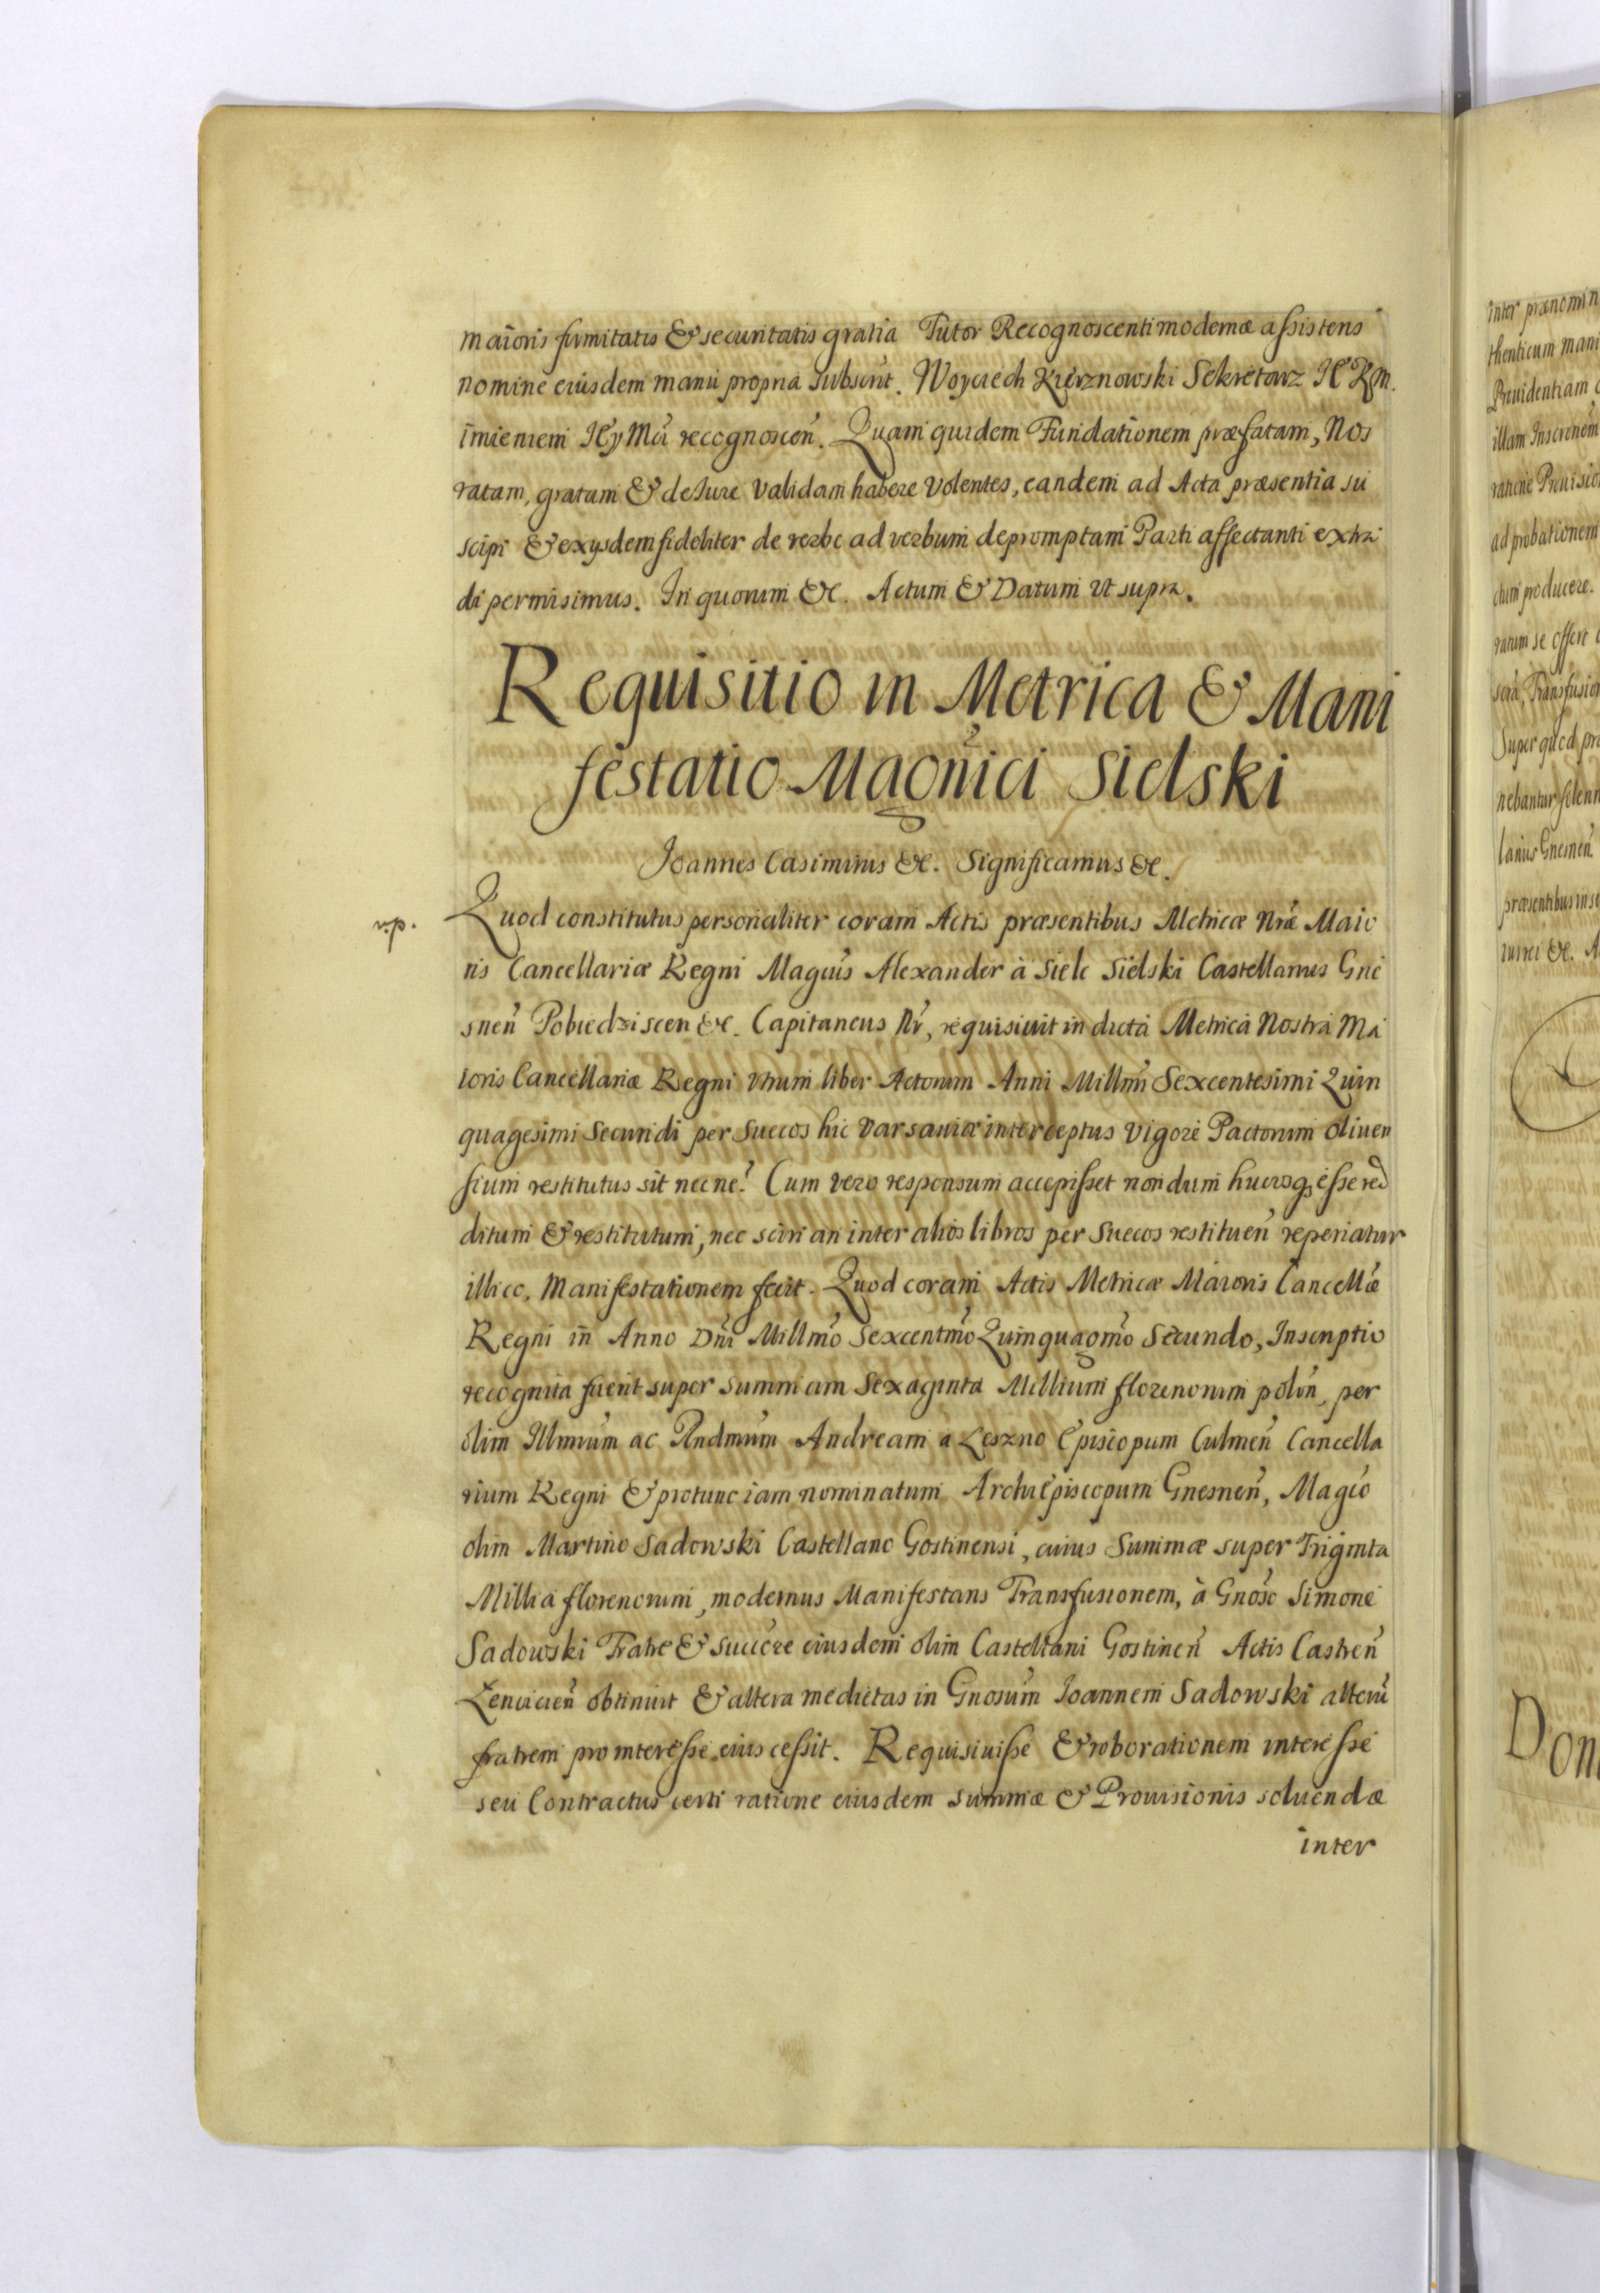 maioris firmitatis & securitatis gratia Tutor Recognoscenti modernæ assistens
nomine eiusdem manu propria subscrit. Woyciech Kierznowski Sekretarz
imieniem recognoscen. Quam quidem Fundationem præfatam, Nos
ratam, gratam & de Iure validam habere volentes, eandem ad Acta præsentia su
scipi & exysdem fideliter de verbo ad verbum depromptam Parti affectanti extra
di permisimus. In quorum &c. Actum & Datum vt supra.
Requisitio in Metrica & Mani
festatio Magnici Sielski
Ioannes Casimirus &c. Significamus &c.
Quod constitutus personaliter coram Actis præsentibus Metricæ Nræ Maio
rp.
ris Cancellariæ Regni Magcus Alexander à Siele Sielski Castellanus Gne
snen Pobiedziscen &c. Capitaneus Nr, requisiuit in dicta Metrica Nostra Ma
ioris Cancellariæ Regni vtrum liber Actorum Anni Millmi Sexcentesimi Quin
quagesimi Secundi per Suecos hic Varsauiæ interceptus vigore Pactorum Oliuen
sium restitutus sit nec ne? Cum vero responsum accepisset nondum hucusq esse red
ditum & restitutum, nec sciri an inter alios libros per Suecos restituen reperiatur
illico, Manifestationem fecit. Quod coram Actis Metricæ Maioris Cancellæ
Regni in Anno Dni Millmo Sexcentmo Quinquagmo Secundo, Inscriptio
recognita fuerit super summam Sexaginta Millium florenorum polon, per
olim Illmum ac Rndmum Andream a Leszno Episcopum Culmen Cancella
rium Regni & protunc iam nominatum ArchiEpiscopum Gnesnen, Magco
olim Martino Sadowski Castellano Gostinensi, cuius Summæ super Triginta
Millia florenorum, modernus Manifestans Transfusionem, à Gnoso Simone
Sadowski Fratre & succre eiusdem olim Castellani Gostinen Actis Castren
Lencicien obtinuit & altera medietas in Gnosum Ioannem Sadowski alterum
fratrem pro interesse eius cessit. Requisiuisse & roborationem interesse
seu Contractus certi ratione eiusdem summæ & Prouisionis soluendæ
inter